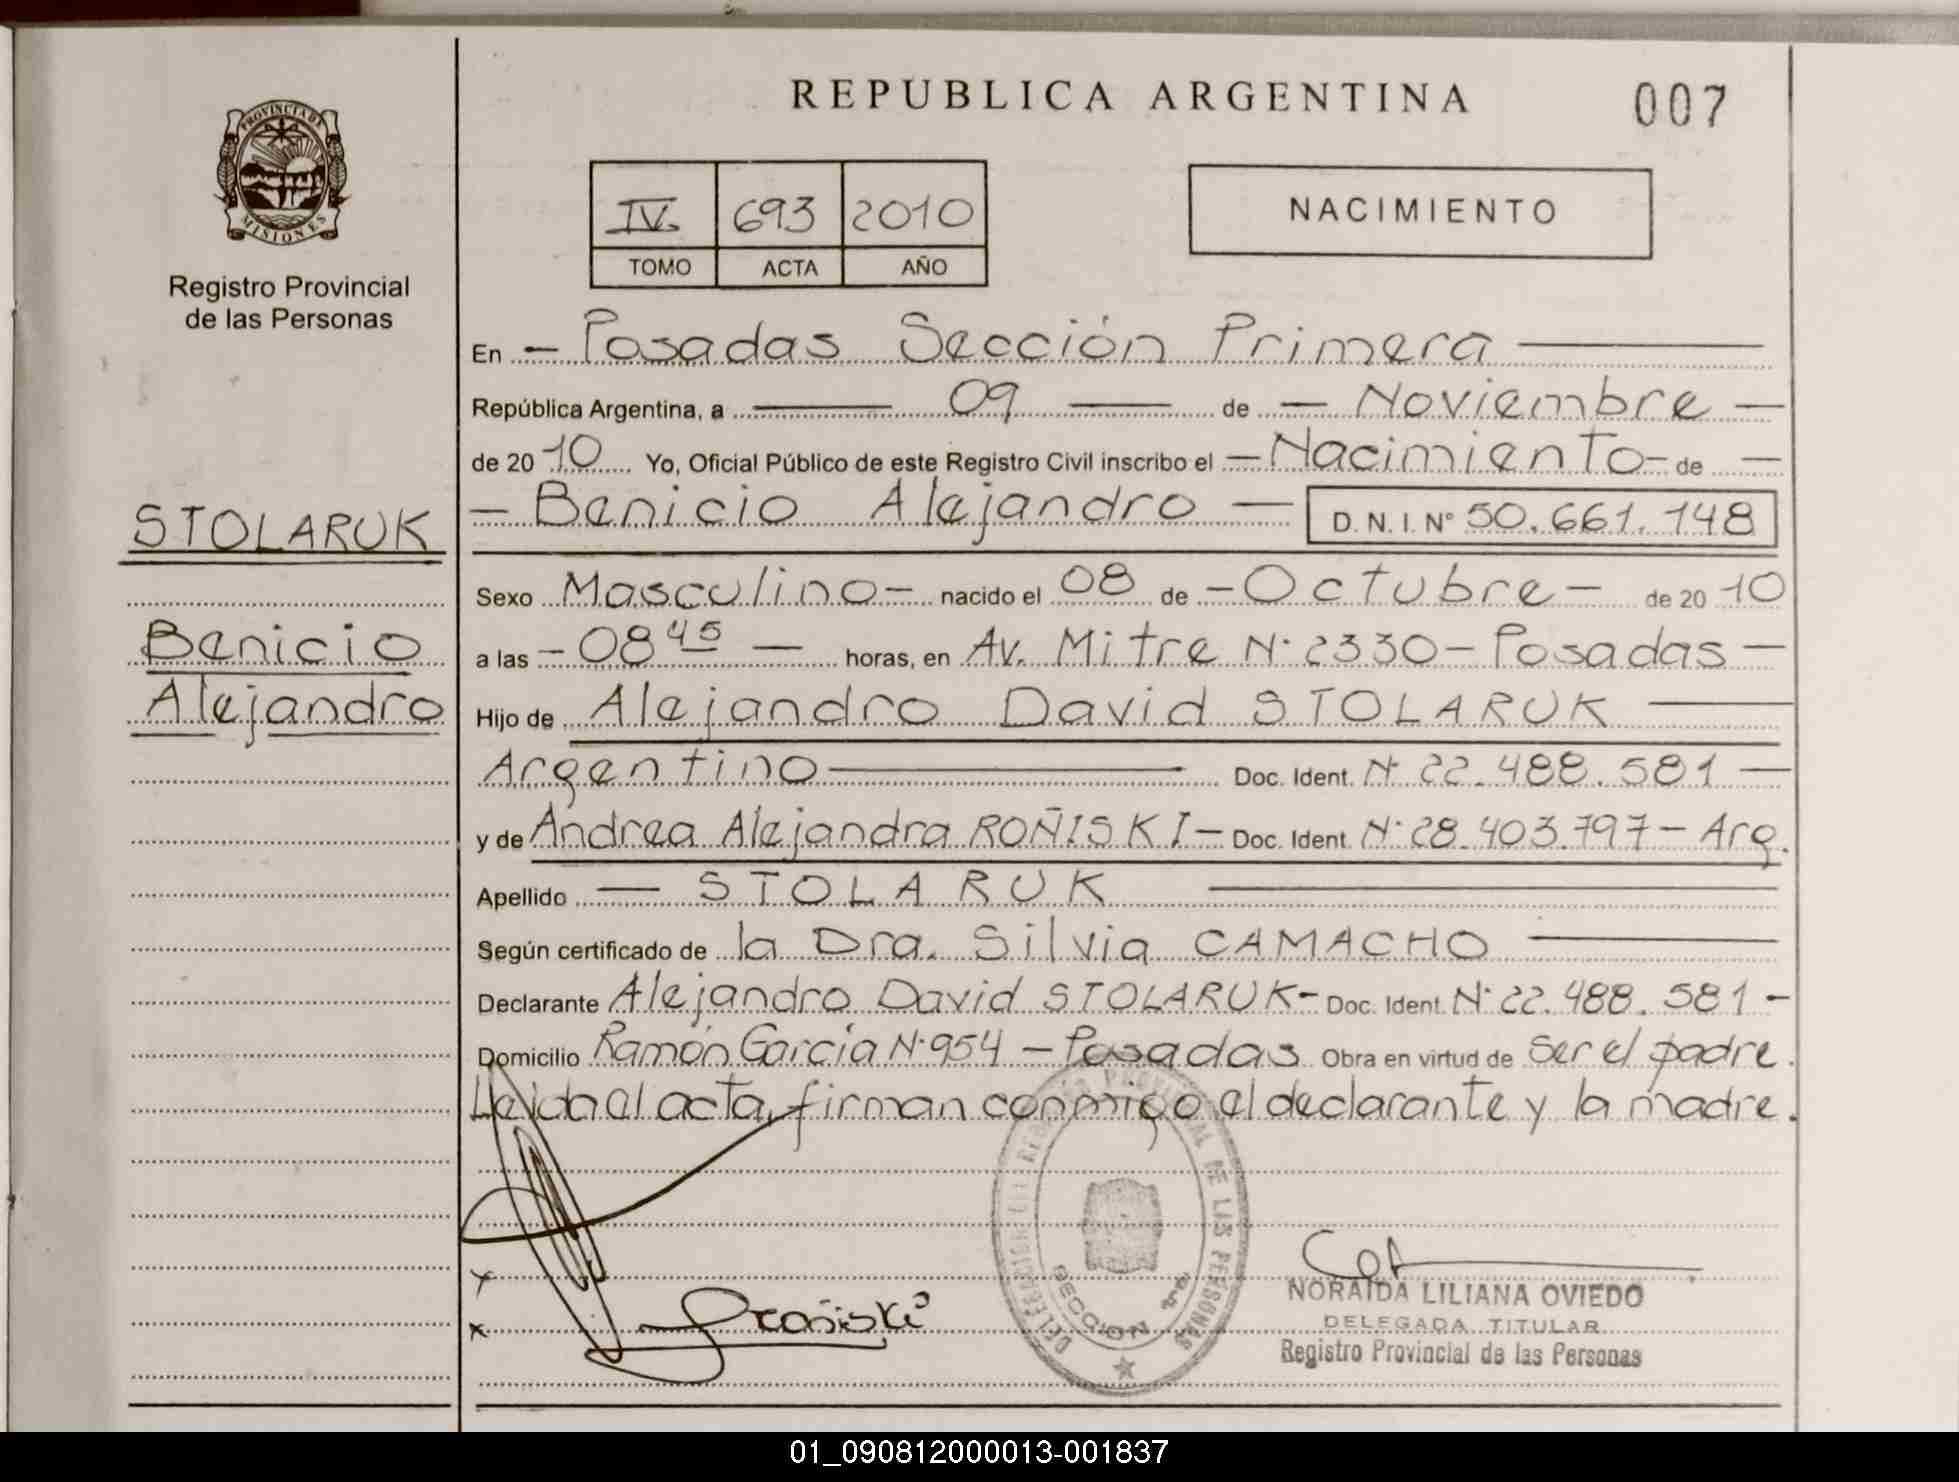 REPUBLICA ARGENTINA
007
PROVINCIA DE
MISIONES
Registro Provincial
de las Personas
IV. 693 2010
TOMO ACTA AÑO
NACIMIENTO
En - Posadas Sección Primera
República Argentina, a 09 de - Noviembre -
de 2010 Yo, Oficial Público de este Registro Civil inscribo el - Nacimiento - de -
- Benicio Alejandro - D.N.I. Nº 50.661.148
STOLARUK
Benicio
Alejandro
Sexo Masculino - nacido el 08 de - Octubre - de 2010
a las - 08 45 - horas, en Av. Mitre Nº 2330 - Posadas -
Hijo de Alejandro David STOLARUK
Argentino Doc. Ident. Nº 22.488.581 -
y de Andrea Alejandra ROÑISKI - Doc. Ident. Nº 28.403.797 - Arg.
Apellido - STOLARUK
Según certificado de la Dra. Silvia CAMACHO
Declarante Alejandro David STOLARUK - Doc. Ident. Nº 22.488.581 -
Domicilio Ramón García Nº 954 - Posadas Obra en virtud de Ser el padre.
Leída el acta, firman conmigo el declarante y la madre.
DELEGACION DEL REGISTRO PROVINCIAL DE LAS PERSONAS
SECCION 1ra
x
x Roñiski
NORAIDA LILIANA OVIEDO
DELEGADA TITULAR
Registro Provincial de las Personas
01_090812000013-001837